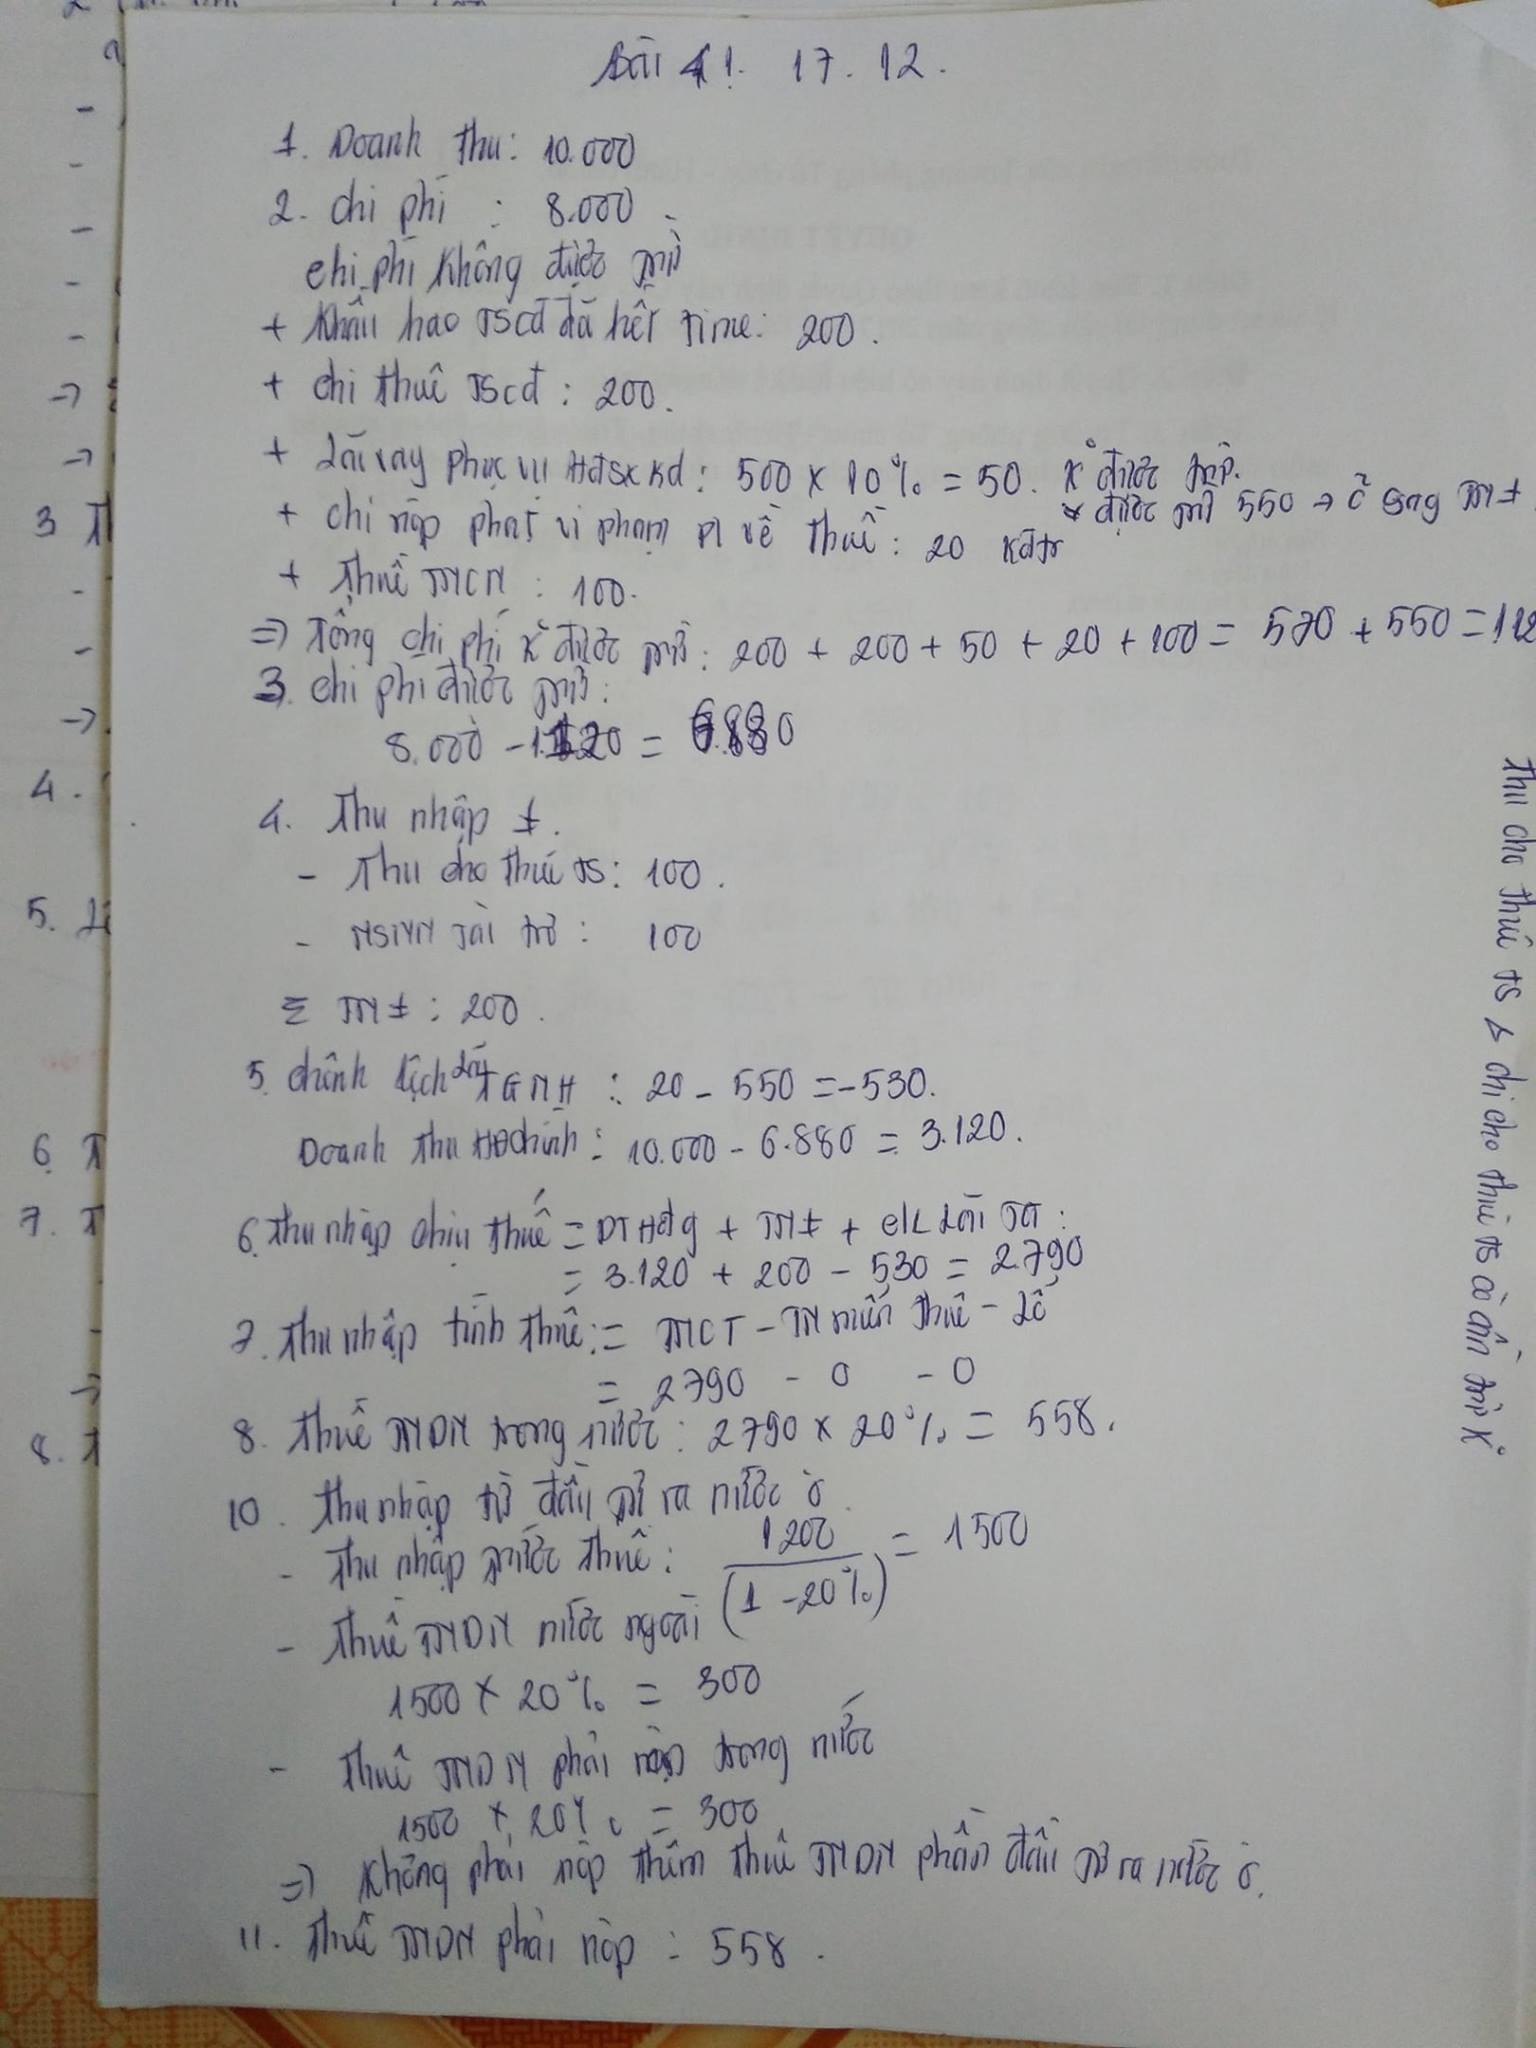 Bài 41. 17.12.
1. Doanh thu: 10.000
2. Chi phí : 8.000
chi phí không được trừ
+ Khấu hao TSCĐ đã hết time: 200.
+ chi thuê TSCĐ : 200.
+ Lãi vay phục vụ HĐSXKD: 500 x 10% = 50. K° được trừ.
* được trừ 550 → ĉ sang TN ≠
+ chi nộp phạt vi phạm pl về thuế: 20 Kđtr
+ Thuế TNCN : 100.
=> Tổng chi phí k° được trừ: 200 + 200 + 50 + 20 + 100 = 570 + 550 = 112
3. Chi phí được trừ:
8.000 - 1.120 = 6.880
4. Thu nhập ≠.
- Thu cho thuê TS: 100.
- NSNN tài trợ: 100
Σ TN ≠ : 200.
5. Chênh lệch lãi TGNH : 20 - 550 = -530.
Doanh thu HĐ chính: 10.000 - 6.880 = 3.120.
6. Thu nhập chịu thuế = DTHđg + TN ≠ + c/L Lãi TG:
= 3.120 + 200 - 530 = 2.790
7. Thu nhập tính thuế: = TNCT - TN miễn thuế - Lỗ
= 2790 - 0 - 0
8. Thuế TNDN trong nước: 2790 x 20% = 558.
10. Thu nhập từ đầu tư ra nước ò
- Thu nhập trước thuế: 1200 / (1 - 20%) = 1500
- Thuế TNDN nước ngoài
1500 x 20% = 300
- Thuế TNDN phải nộp trong nước
1500 x 20% = 300
=> Không phải nộp thêm thuế TNDN phần đầu tư ra nước ò.
11. Thuế TNDN phải nộp : 558.
Thu cho thuê TS & chi cho thuê TS có cần trừ K°
3
4.
5.
6.
7.
8.